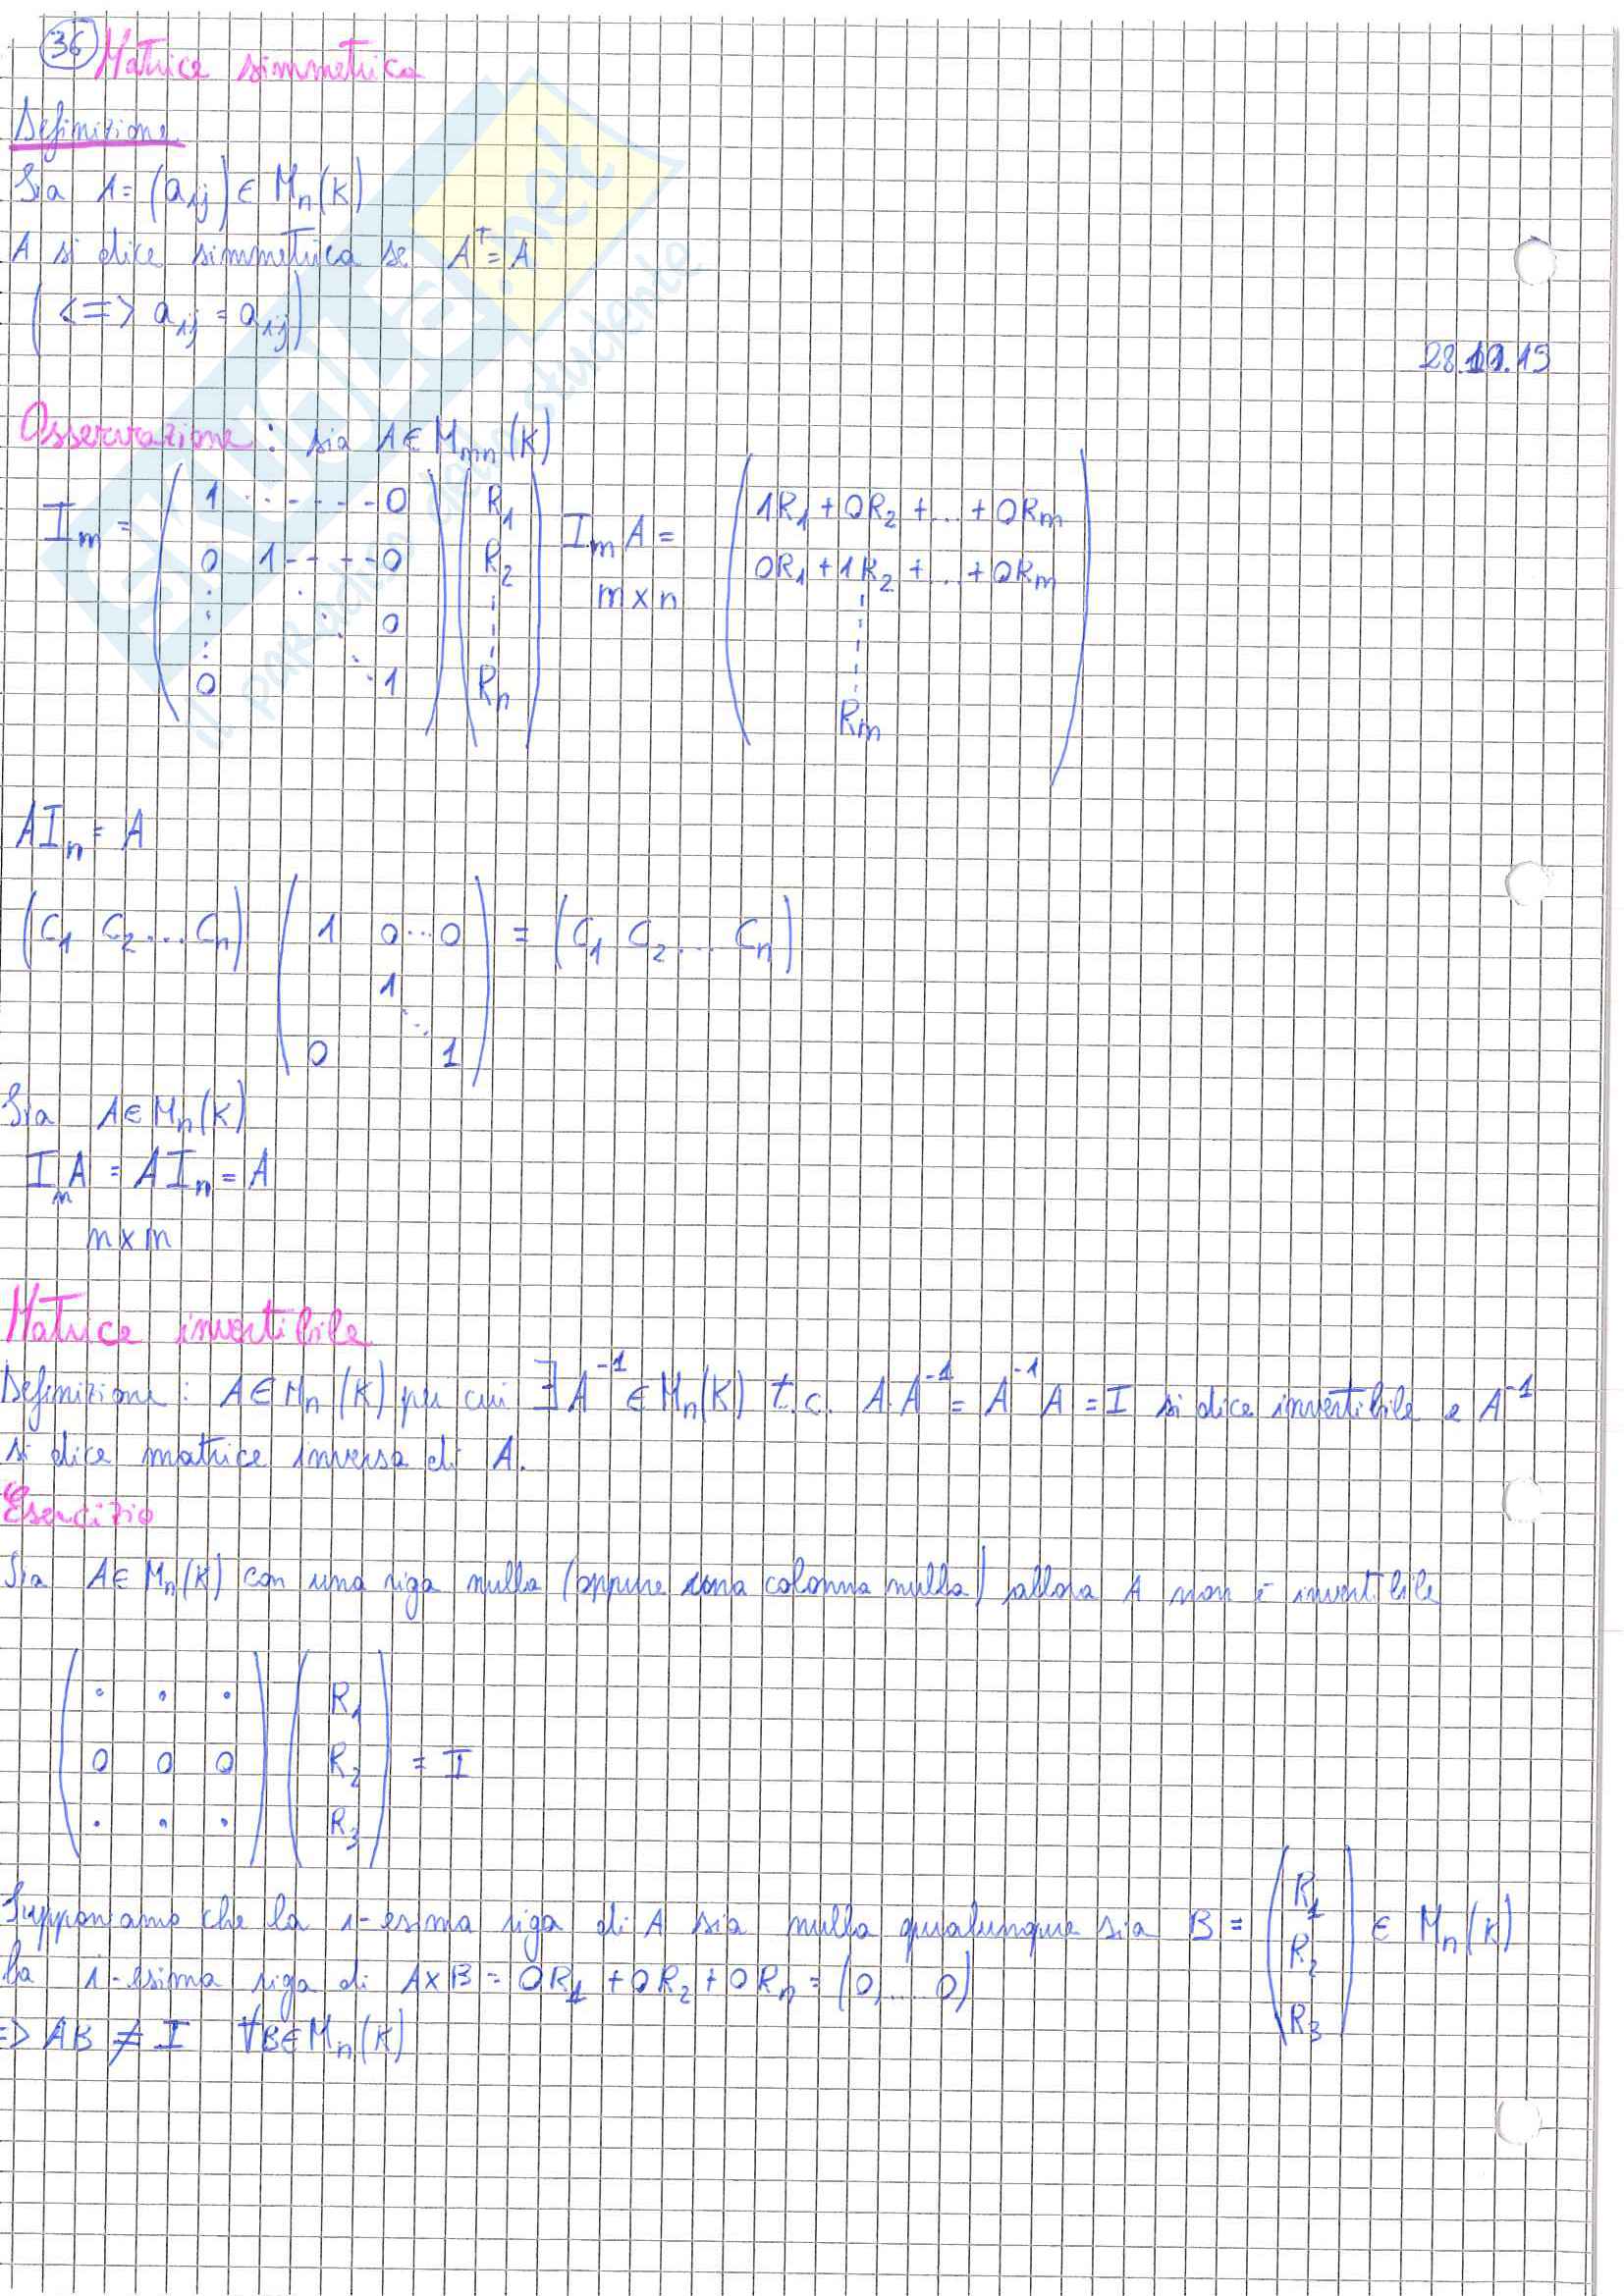 36 Matrice simmetrica
Definizione
Sia A = (aij) ∈ Mn(K)
A si dice simmetrica se A^T = A
(<=> aij = aij)
28.10.15
Osservazione: sia A ∈ Mmn(K)
Im = ( 1 ------ 0 ) ( R1 ) Im A = ( 1R1 + 0R2 + ... + 0Rm )
( 0 1 ---- 0 ) ( R2 ) m x n ( 0R1 + 1R2 + ... + 0Rm )
( : 0 ) ( : ) ( : )
( 0 1 ) ( Rn ) ( Rm )
AIn = A
(C1 C2 ... Cn) ( 1 0 ... 0 ) = (C1 C2 ... Cn)
1
0 1
Sia A ∈ Mn(K)
InA = AIn = A
n x n
Matrice invertibile
Definizione: A ∈ Mn(K) per cui ∃ A^-1 ∈ Mn(K) t.c. A·A^-1 = A^-1 A = I si dice invertibile e A^-1
si dice matrice inversa di A.
Esercizio
Sia A ∈ Mn(K) con una riga nulla (oppure una colonna nulla) allora A non è invertibile
( · · · ) ( R1 )
( 0 0 0 ) ( R2 ) = I
( · · · ) ( R3 )
Supponiamo che la i-esima riga di A sia nulla qualunque sia B = ( R1 R2 R3 ) ∈ Mn(K)
la i-esima riga di A x B = 0R1 + 0R2 + 0Rn = (0, ... 0)
=> AB ≠ I ∀B ∈ Mn(K)
SKUOLA.net
il paradiso dello studente